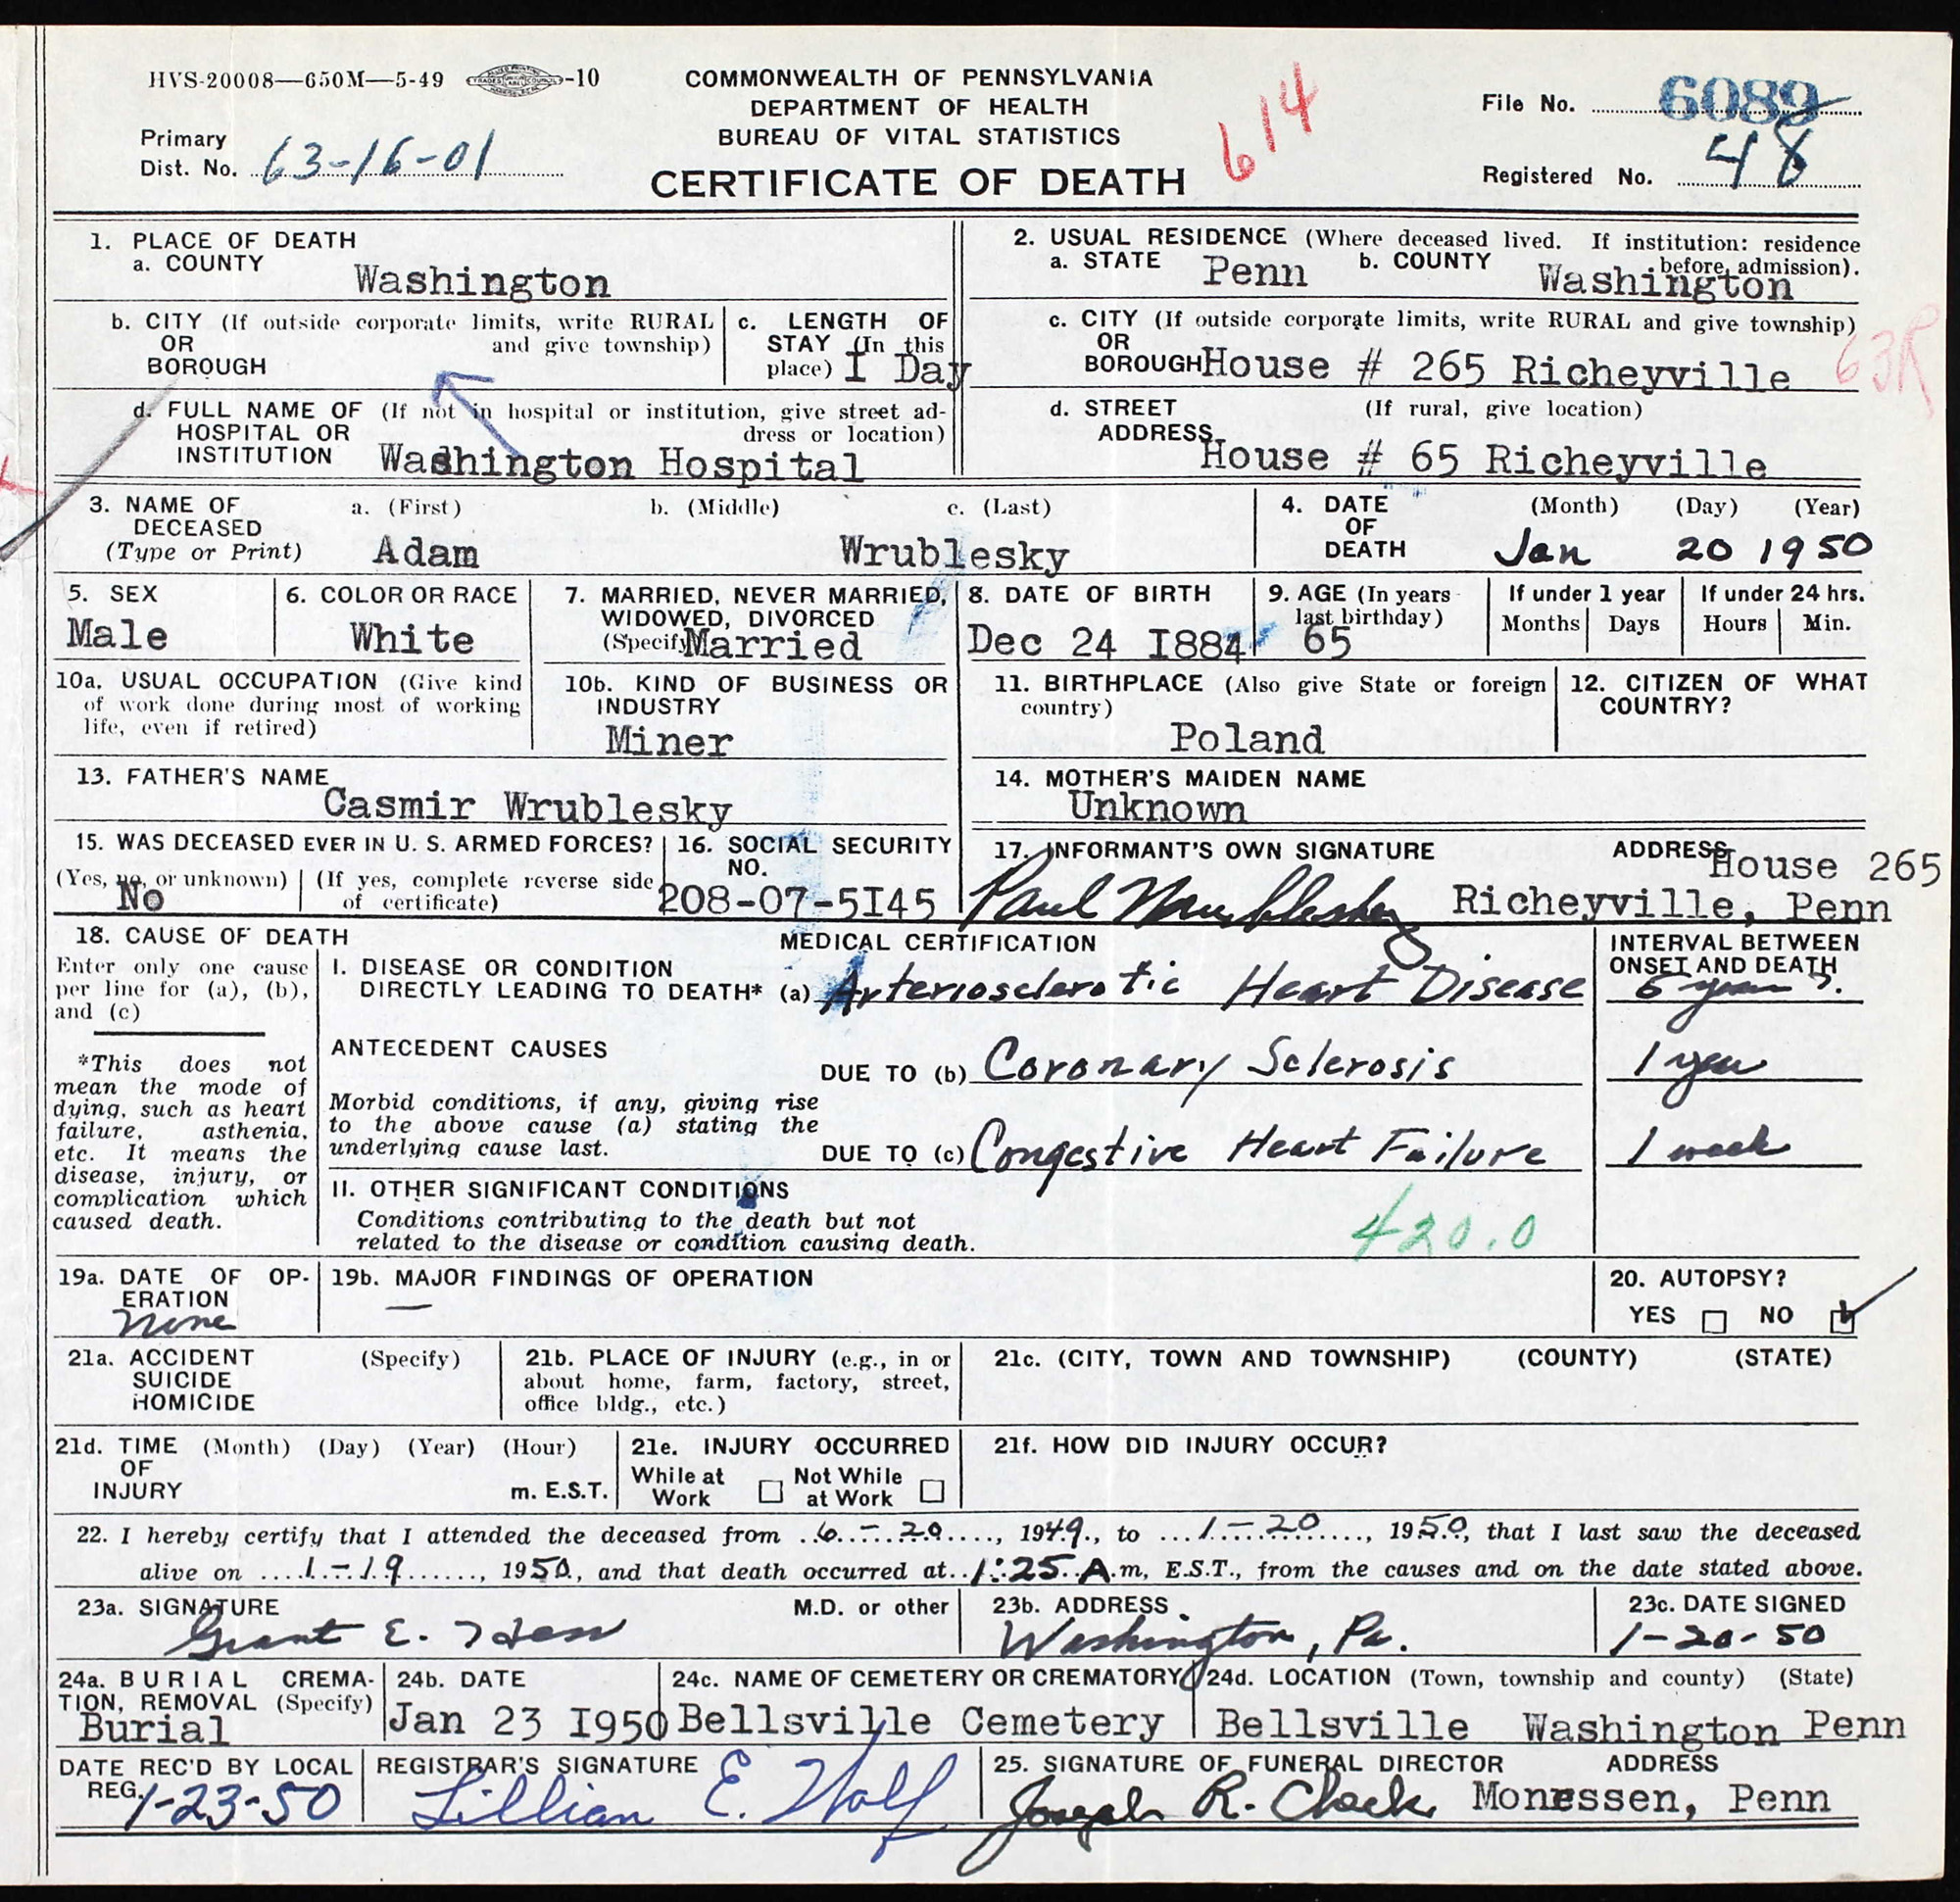 HVS-20008—650M—5-49 -10
COMMONWEALTH OF PENNSYLVANIA
DEPARTMENT OF HEALTH
BUREAU OF VITAL STATISTICS
CERTIFICATE OF DEATH
614
Primary
Dist. No. 63-16-01
File No. 6089
Registered No. 48
1. PLACE OF DEATH
a. COUNTY Washington
b. CITY (If outside corporate limits, write RURAL
OR and give township)
BOROUGH
c. LENGTH OF
STAY (In this
place) I Day
d. FULL NAME OF (If not in hospital or institution, give street ad-
HOSPITAL OR dress or location)
INSTITUTION Washington Hospital
2. USUAL RESIDENCE (Where deceased lived. If institution: residence
before admission).
a. STATE Penn b. COUNTY Washington
c. CITY (If outside corporate limits, write RURAL and give township)
OR
BOROUGH House # 265 Richeyville
63R
d. STREET (If rural, give location)
ADDRESS House # 65 Richeyville
3. NAME OF a. (First) b. (Middle) c. (Last)
DECEASED
(Type or Print) Adam Wrublesky
4. DATE (Month) (Day) (Year)
OF
DEATH Jan 20 1950
5. SEX
Male
6. COLOR OR RACE
White
7. MARRIED, NEVER MARRIED,
WIDOWED, DIVORCED
(Specify) Married
8. DATE OF BIRTH
Dec 24 I884
9. AGE (In years
last birthday)
65
If under 1 year
Months Days
If under 24 hrs.
Hours Min.
10a. USUAL OCCUPATION (Give kind
of work done during most of working
life, even if retired)
10b. KIND OF BUSINESS OR
INDUSTRY
Miner
11. BIRTHPLACE (Also give State or foreign
country)
Poland
12. CITIZEN OF WHAT
COUNTRY?
13. FATHER'S NAME
Casmir Wrublesky
14. MOTHER'S MAIDEN NAME
Unknown
15. WAS DECEASED EVER IN U. S. ARMED FORCES?
(Yes, no, or unknown) (If yes, complete reverse side
of certificate)
No
16. SOCIAL SECURITY
NO.
208-07-5I45
17. INFORMANT'S OWN SIGNATURE ADDRESS House 265
Paul Wrublesky Richeyville, Penn
18. CAUSE OF DEATH
Enter only one cause
per line for (a), (b),
and (c)
*This does not
mean the mode of
dying, such as heart
failure, asthenia,
etc. It means the
disease, injury, or
complication which
caused death.
MEDICAL CERTIFICATION
I. DISEASE OR CONDITION
DIRECTLY LEADING TO DEATH* (a) Arteriosclerotic Heart Disease
ANTECEDENT CAUSES
DUE TO (b) Coronary Sclerosis
Morbid conditions, if any, giving rise
to the above cause (a) stating the
underlying cause last.
DUE TO (c) Congestive Heart Failure
II. OTHER SIGNIFICANT CONDITIONS
Conditions contributing to the death but not
related to the disease or condition causing death.
420.0
INTERVAL BETWEEN
ONSET AND DEATH
5 years ?.
1 year
1 week
19a. DATE OF OP-
ERATION
None
19b. MAJOR FINDINGS OF OPERATION
—
20. AUTOPSY?
YES NO
21a. ACCIDENT (Specify)
SUICIDE
HOMICIDE
21b. PLACE OF INJURY (e.g., in or
about home, farm, factory, street,
office bldg., etc.)
21c. (CITY, TOWN AND TOWNSHIP) (COUNTY) (STATE)
21d. TIME (Month) (Day) (Year) (Hour)
OF
INJURY m. E.S.T.
21e. INJURY OCCURRED
While at Not While
Work at Work
21f. HOW DID INJURY OCCUR?
22. I hereby certify that I attended the deceased from 6-20, 1949, to 1-20, 1950, that I last saw the deceased
alive on 1-19, 1950, and that death occurred at 1:25 A.m, E.S.T., from the causes and on the date stated above.
23a. SIGNATURE M.D. or other
Grant E. Hess
23b. ADDRESS
Washington, Pa.
23c. DATE SIGNED
1-20-50
24a. BURIAL CREMA-
TION, REMOVAL (Specify)
Burial
24b. DATE
Jan 23 I950
24c. NAME OF CEMETERY OR CREMATORY
Bellsville Cemetery
24d. LOCATION (Town, township and county) (State)
Bellsville Washington Penn
DATE REC'D BY LOCAL
REG. 1-23-50
REGISTRAR'S SIGNATURE
Lillian E. Wolf
25. SIGNATURE OF FUNERAL DIRECTOR ADDRESS
Joseph R. Check Monessen, Penn